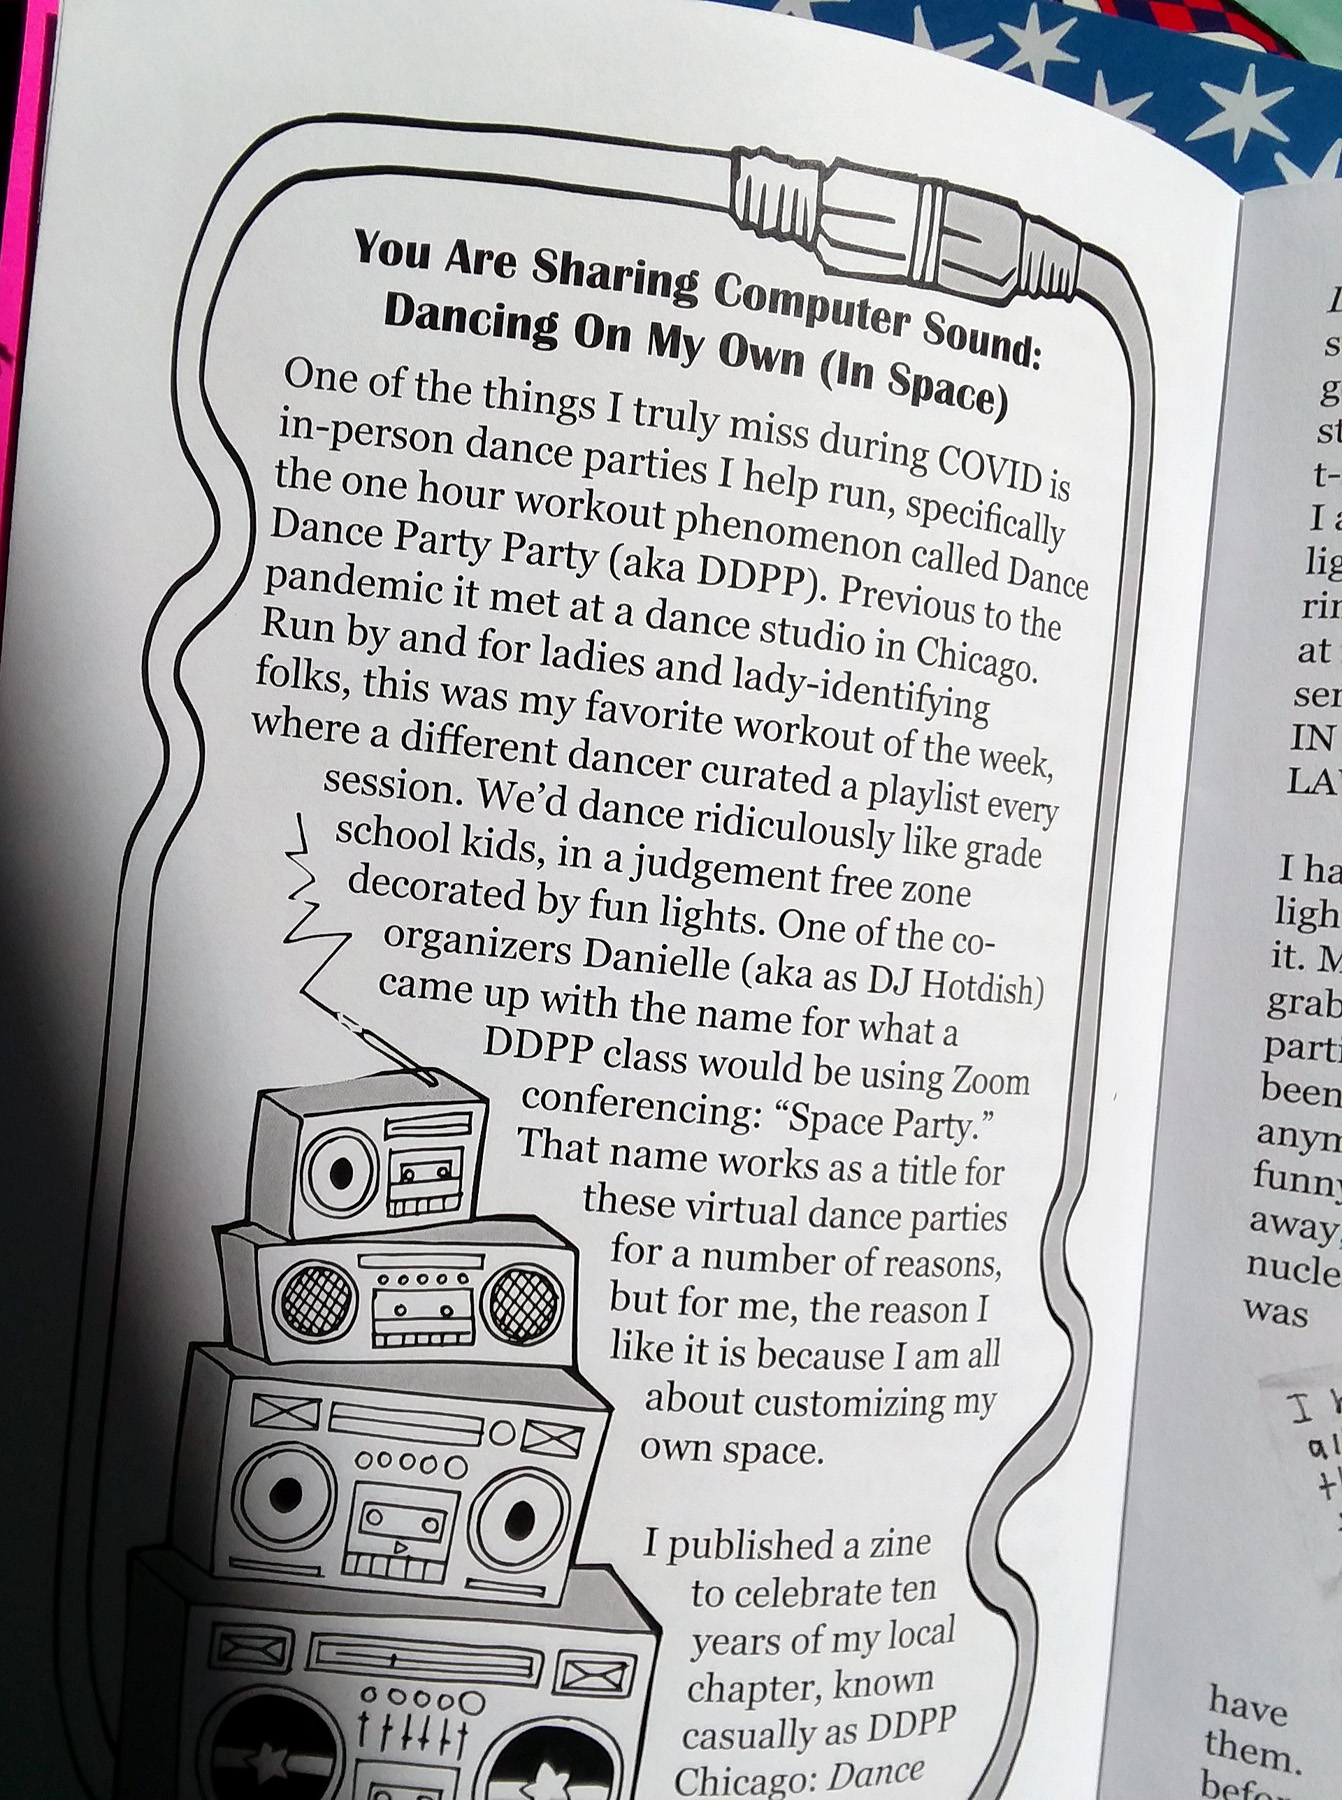 You Are Sharing Computer Sound:
Dancing On My Own (In Space)
One of the things I truly miss during COVID is
in-person dance parties I help run, specifically
the one hour workout phenomenon called Dance
Dance Party Party (aka DDPP). Previous to the
pandemic it met at a dance studio in Chicago.
Run by and for ladies and lady-identifying
folks, this was my favorite workout of the week,
where a different dancer curated a playlist every
session. We'd dance ridiculously like grade
school kids, in a judgement free zone
decorated by fun lights. One of the co-
organizers Danielle (aka as DJ Hotdish)
came up with the name for what a
DDPP class would be using Zoom
conferencing: “Space Party.”
That name works as a title for
these virtual dance parties
for a number of reasons,
but for me, the reason I
like it is because I am all
about customizing my
own space.
I published a zine
to celebrate ten
years of my local
chapter, known
casually as DDPP
Chicago: Dance
I a
at
IN
I ha
it. M
was
I
have
them.